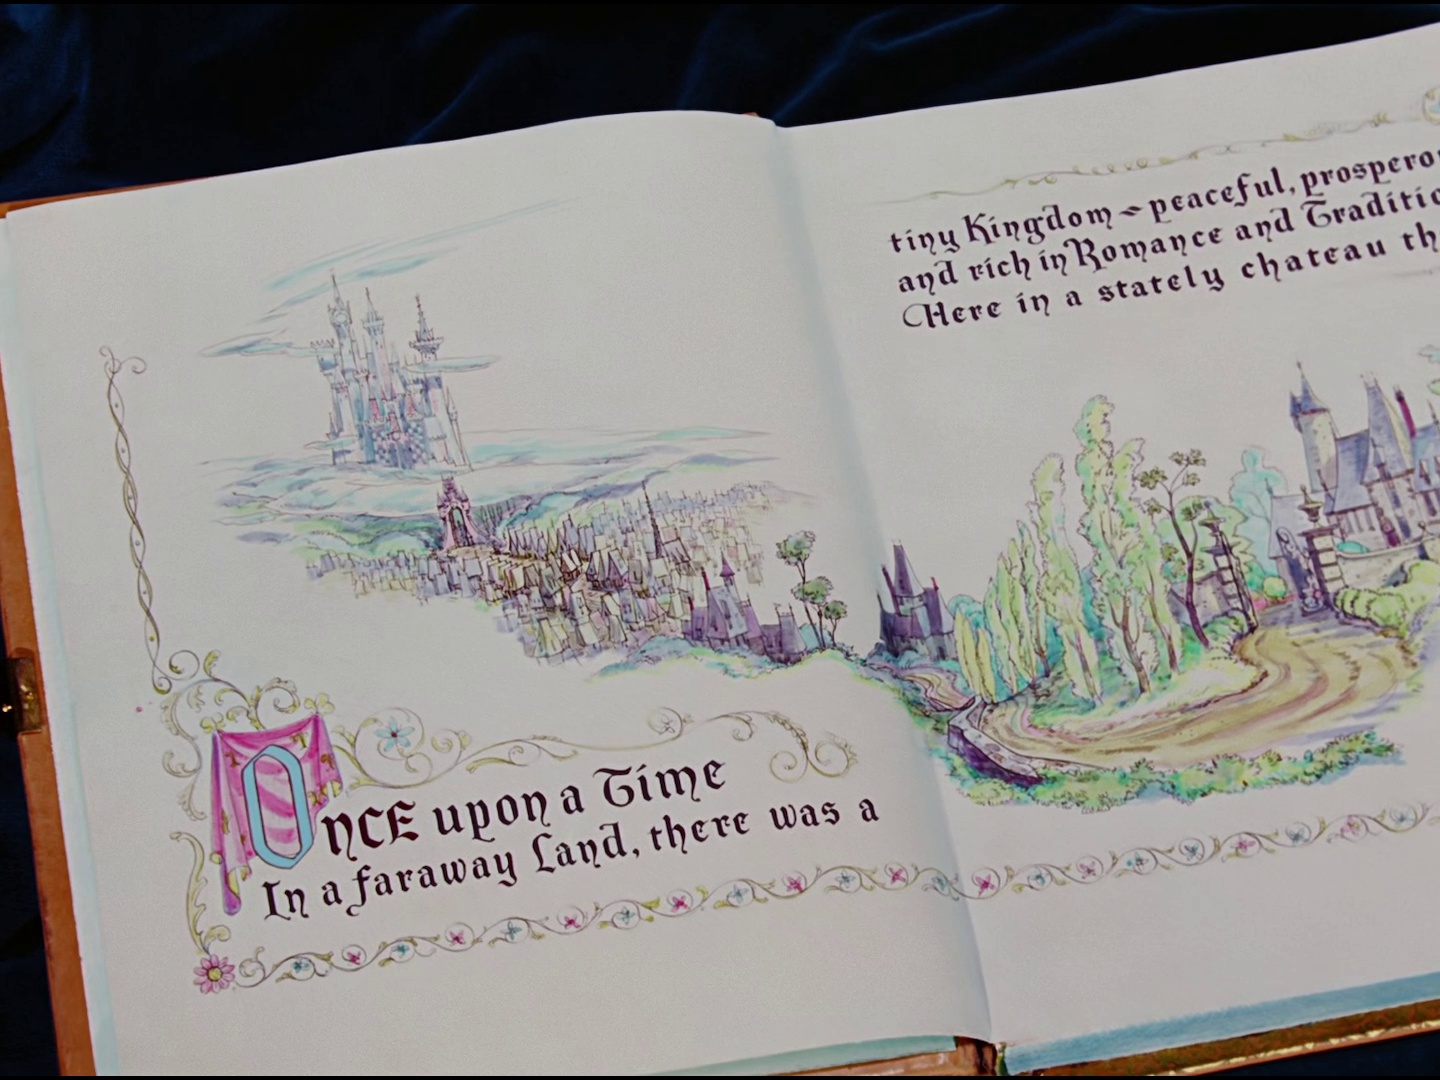 Once upon a Time
In a faraway Land, there was a
tiny Kingdom ~ peaceful,
and rich in Romance and
Here in a stately chateau